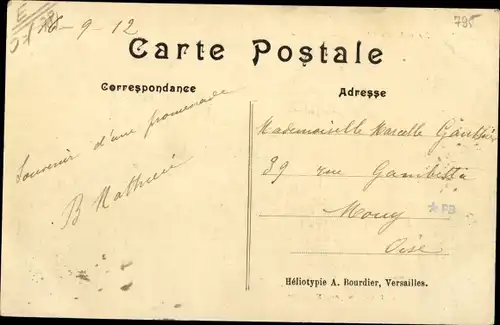 16-9-12
795
Carte Postale
Correspondance
Adresse
Souvenir d'une promenade
B Mathieu
Mademoiselle Marcelle Gauthier
39 rue Gambetta
Mouy
Oise
* PB
Héliotypie A. Bourdier, Versailles.